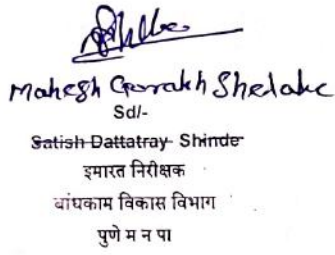 Mahesh Gorakh Shelake
Sd/-
Satish Dattatray Shinde
इमारत निरीक्षक
बांधकाम विकास विभाग
पुणे म न पा